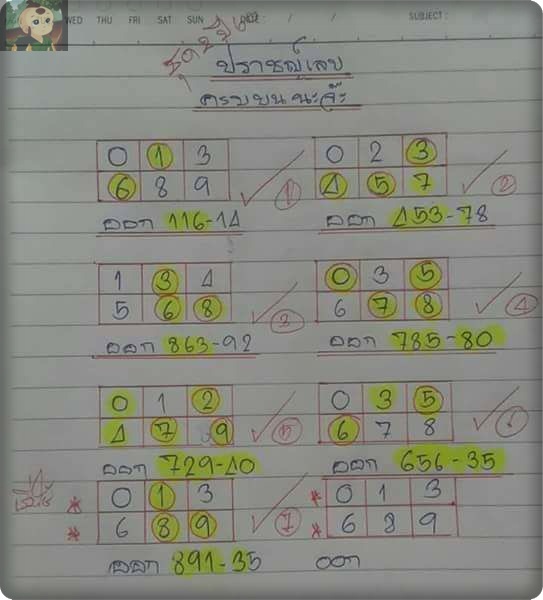 WED THU FRI SAT SUN DATE: / / SUBJECT:
ปราชญ์เลข
ครบบน นะจ๊ะ
0 1 3
6 8 9
①
ออก 116-14
0 2 3
4 5 7
②
ออก 453-78
1 3 4
5 6 8
③
ออก 863-92
0 3 5
6 7 8
④
ออก 785-80
0 1 2
4 7 9
⑤
ออก 729-40
0 3 5
6 7 8
⑥
ออก 656-35
* 0 1 3
* 6 8 9
⑦
ออก 891-35
* 0 1 3
* 6 8 9
ออก